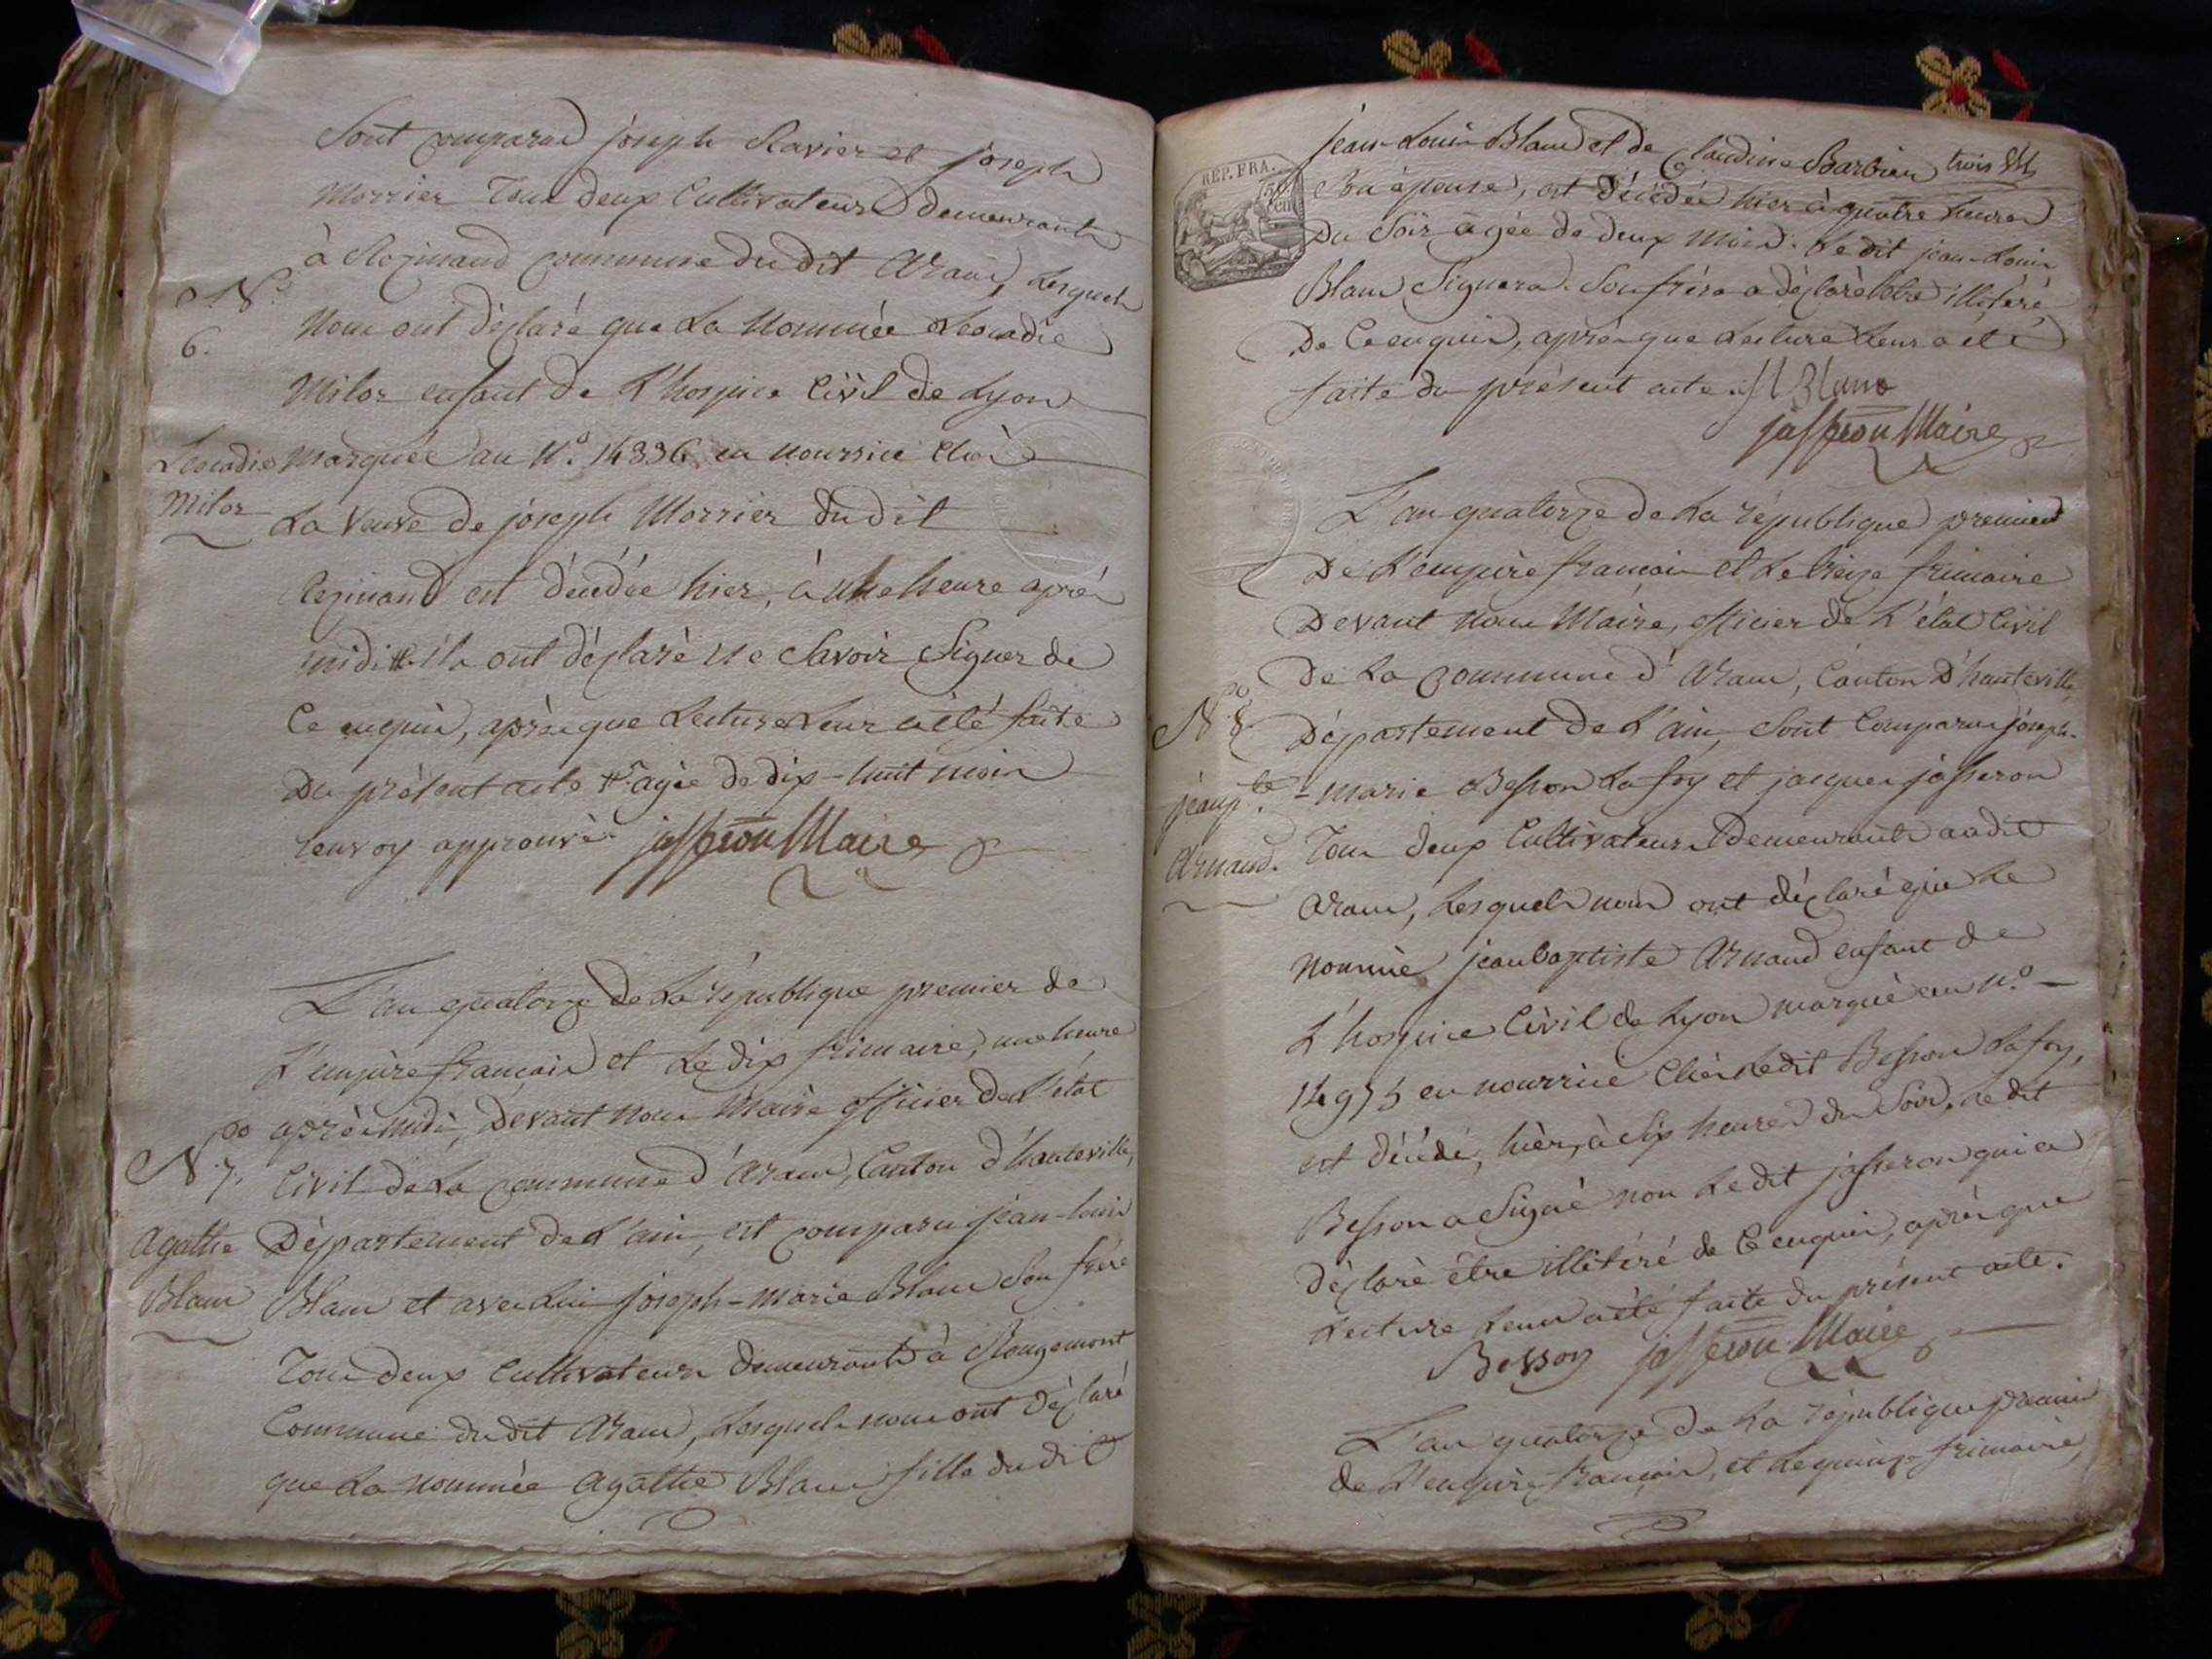 Sont comparus joseph Savier et joseph
Morrier Tous deux Cultivateurs demeurants
à Reginand commune dudit Aranc, Lesquels
N.o
6.
Nous ont déclaré que La Nommée Leocadie
Milor enfant de L'hospice Civil de Lyon
Leocadie
Milor
Marquée au N.o 14836 en nourrice Chez
La Veuve de joseph Morrier dudit
Reginand est décédée hier, à une heure après
midi # ils ont déclaré Ne Savoir Signer de
Ce enquis, après que Lecture Leur a été faite
Du présent acte # agée de dix-huit mois
renvoy approuvé jasseron Maire
L'an quatorze de La république premier de
L'empire francais et Le dix frimaire, une heure
après midi, Devant nous Maire officier de L'état
N.o 7.
Civil de La commune d'Aranc, Canton d'hauteville,
Agathe
Blanc
Département de L'ain, est comparu jean-louis
Blanc et avec Lui joseph-marie Blanc Son frère
Tous deux Cultivateurs demeurants à Rougemont
Commune dudit Aranc, Lesquels nous ont déclaré
que La nommée Agathe Blanc fille dudit
RÉP. FRA.
jean-Louis Blanc et de Claudine Barbier
Son épouse, est Décédée hier à quatre heures
Du Soir agée de deux mois. Le dit jean-Louis
Blanc Signera. Son frère a déclaré être illiteré
De Ce enquis, après que Lecture Leur a été
faite du présent acte. jl Blanc
jasseron Maire
L'an quatorze de La république premier
De L'empire francais et Le treize frimaire
Devant Nous Maire, officier de L'état Civil
De La commune d'Aranc, Canton D'hauteville,
N.o 8.
Département de L'ain, Sont Comparus joseph-
jean bte.
Arnaud.
-marie Besson Lafoy et jacques jasseron
Tous deux Cultivateurs Demeurants audit
Aranc, Lesquels nous ont déclaré que Le
Nommé jeanbaptiste Arnaud enfant de
L'hospice Civil de Lyon marqué au N.o
14975 en nourrice Chez Ledit Besson Lafoy,
est décédé, hier, à Six heures du Soir, Le dit
Besson a Signé non Ledit jasseron qui a
Déclaré être illitéré de Ce enquis, après que
Lecture Leur a été faite du présent acte.
Besson jasseron Maire
L'an quatorze de La république premier
de L'empire francais, et Le quinze frimaire,